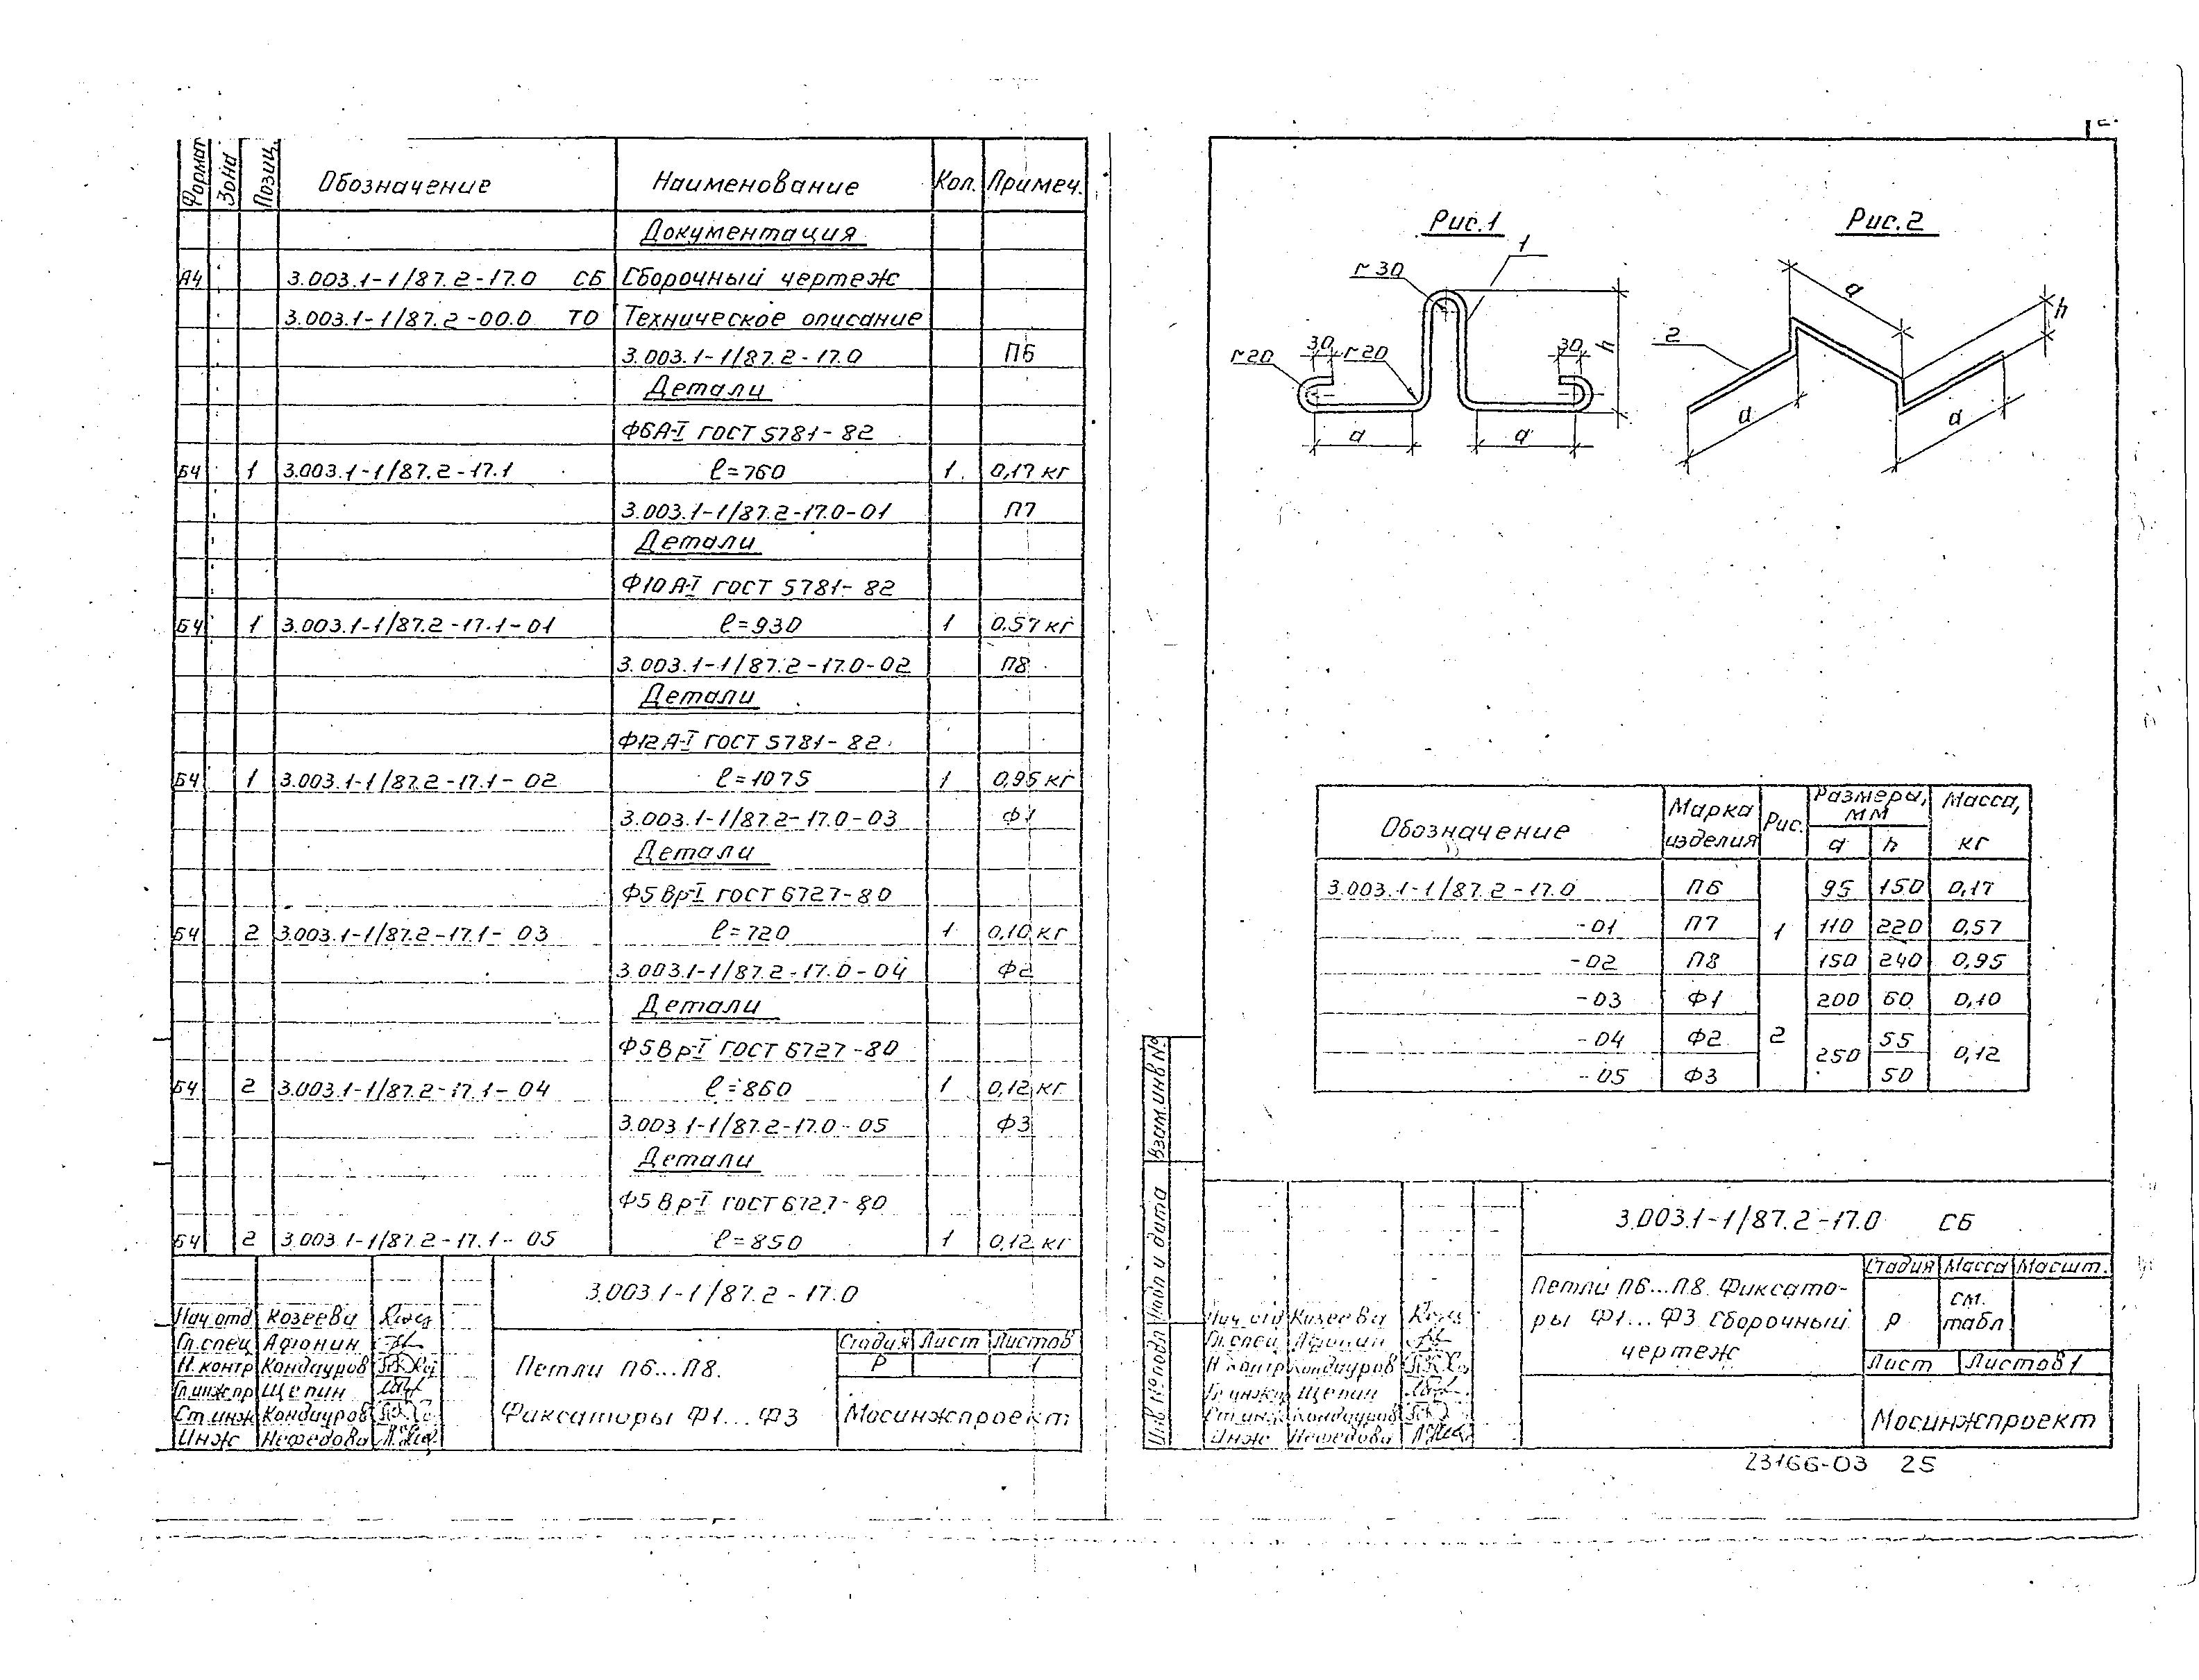 Формат Зона Позиц. Обозначение Наименование Кол. Примеч.
Документация
А4 3.003.1-1/87.2-17.0 СБ Сборочный чертеж
3.003.1-1/87.2-00.0 ТО Техническое описание
3.003.1-1/87.2-17.0 П6
Детали
Ф6А-I ГОСТ 5781-82
БЧ 1 3.003.1-1/87.2-17.1 ℓ=760 1 0,17 кг
3.003.1-1/87.2-17.0-01 П7
Детали
Ф10А-I ГОСТ 5781-82
БЧ 1 3.003.1-1/87.2-17.1-01 ℓ=930 1 0.57 кг
3.003.1-1/87.2-17.0-02 П8
Детали
Ф12А-I ГОСТ 5781-82
БЧ 1 3.003.1-1/87.2-17.1-02 ℓ=1075 1 0,95 кг
3.003.1-1/87.2-17.0-03 Ф1
Детали
Ф5Вр-I ГОСТ 6727-80
БЧ 2 3.003.1-1/87.2-17.1-03 ℓ=720 1 0,10 кг
3.003.1-1/87.2-17.0-04 Ф2
Детали
Ф5Вр-I ГОСТ 6727-80
БЧ 2 3.003.1-1/87.2-17.1-04 ℓ=860 1 0,12 кг
3.003.1-1/87.2-17.0-05 Ф3
Детали
Ф5Вр-I ГОСТ 6727-80
БЧ 2 3.003.1-1/87.2-17.1-05 ℓ=850 1 0,12 кг
3.003.1-1/87.2-17.0
Нач отд Козеева
Гл.спец Афонин
Н.контр Кондауров
Гл.инж.пр Щепин
Ст.инж Кондауров
Инж Нефедова
Петли П6...П8.
Фиксаторы Ф1...Ф3
Стадия Лист Листов
Р 1
Мосинжпроект
Рис.1
1
r30
r20 30 r20 30
h
a a
Рис.2
2
a h
a a
Обозначение Марка изделия Рис. Размеры, мм Масса, кг
a h
3.003.1-1/87.2-17.0 П6 1 95 150 0,17
-01 П7 110 220 0,57
-02 П8 150 240 0,95
-03 Ф1 2 200 60 0,10
-04 Ф2 250 55 0,12
-05 Ф3 50
Взам.инв №
Подп и дата
Инв № подл
3.003.1-1/87.2-17.0 СБ
Нач отд Козеева
Гл.спец Афонин
Н контр Кондауров
Гл инж.пр Щепин
Ст инж Кондауров
Инж Нефедова
Петли П6...П8. Фиксато-
ры Ф1...Ф3 Сборочный
чертеж
Стадия Масса Масшт.
Р см. табл
Лист Листов 1
Мосинжпроект
23166-03 25